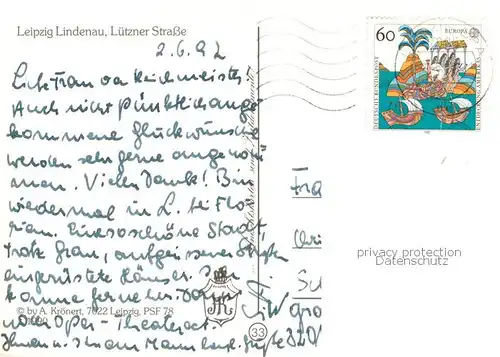 Leipzig Lindenau, Lützner Straße
2.6.92
Liebe Frau
Auch nicht pünktlich ange
kommene Glückwünsche
werden sehr gerne angenom
men. Vielen Dank! Bin
wiedermal in L. bei Flo
rian. Eine so schöne Stadt
trotz Grau, aufgerissener Straßen
eingerüstete Häuser. Ich
komme gerne her. Dann
noch Oper - Theater
Ihnen u. Ihrem Mann Grüße
© by A. Krönert, 7022 Leipzig, PSF 78
1990
33
60
EUROPA
DEUTSCHE BUNDESPOST
Fra
privacy protection
Datenschutz